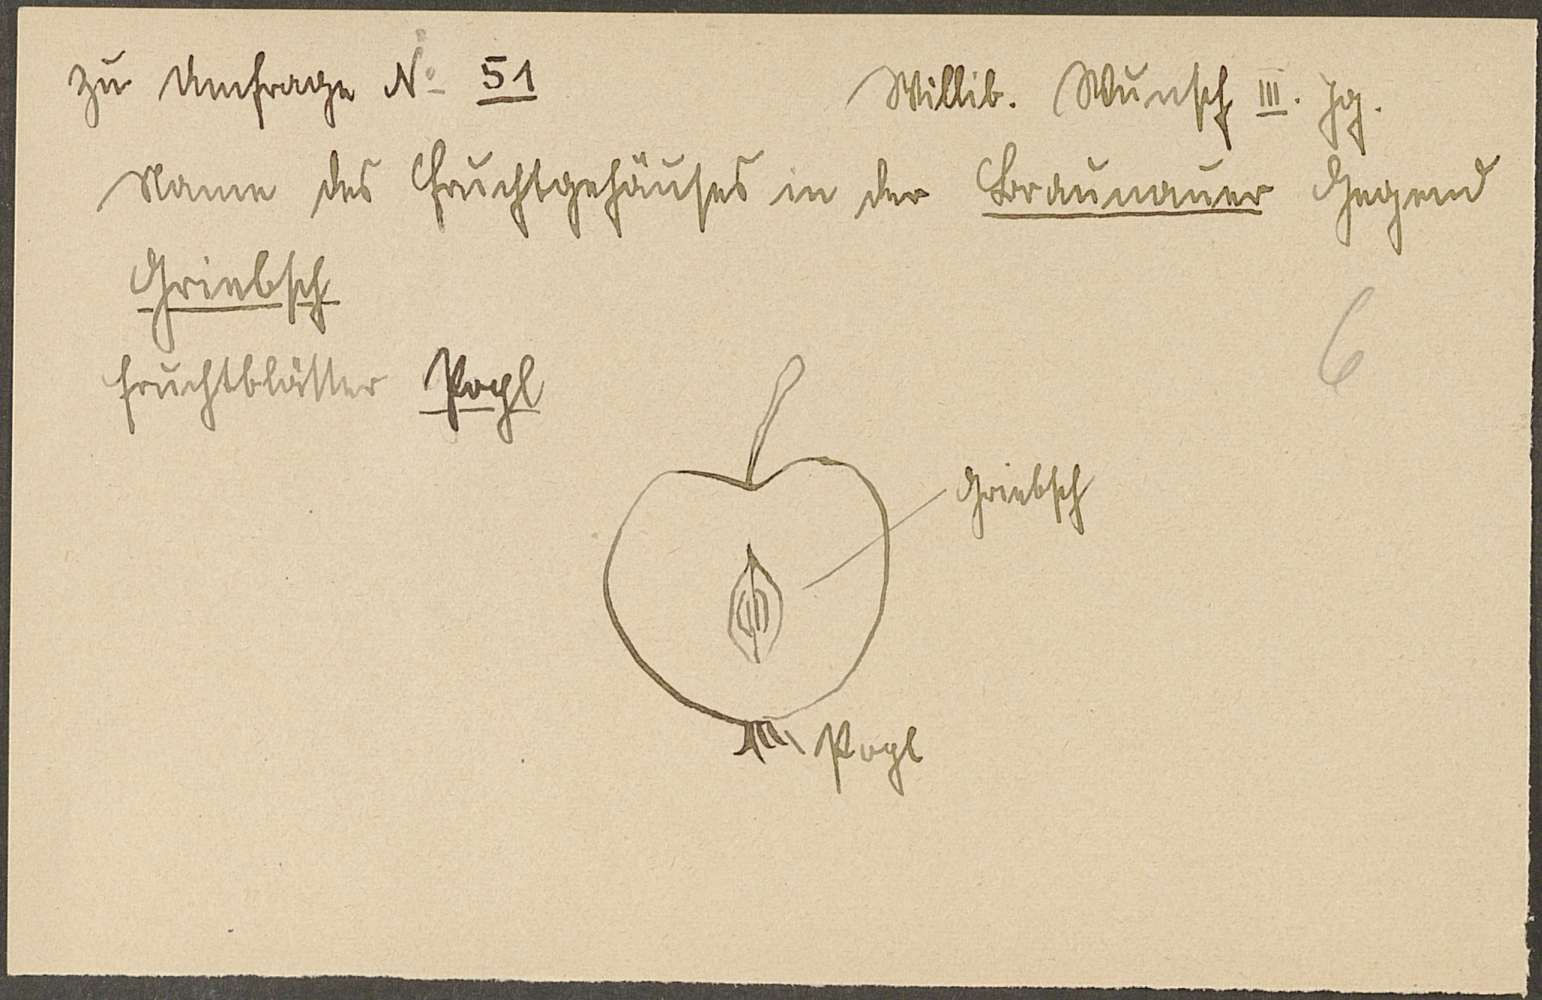 Zu Umfrage No 51
Willib. Wunsch III. Jg.
Name des Fruchtgehäuses in der Braunauer Gegend
Griebsch
6
Fruchtblätter Pogl
Griebsch
Pogl